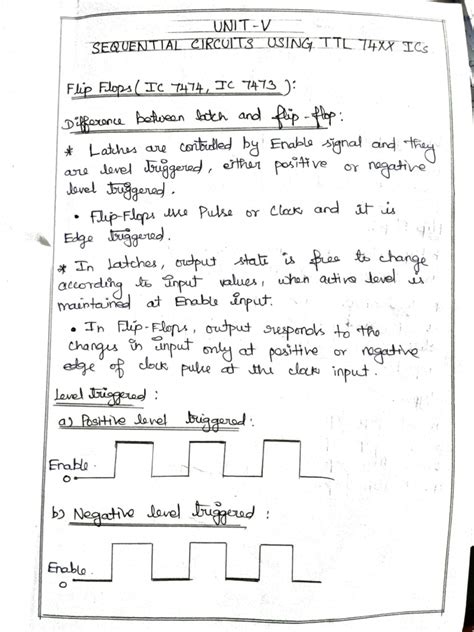 UNIT-V
SEQUENTIAL CIRCUITS USING TTL 74XX ICs
Flip Flops (IC 7474, IC 7473):
Difference between latch and flip-flop:
* Latches are controlled by Enable signal and they
are level triggered, either positive or negative
level triggered.
• Flip-Flops use Pulse or Clock and it is
Edge triggered.
* In Latches, output state is free to change
according to input values, when active level is
maintained at Enable input.
• In Flip-Flops, output responds to the
changes in input only at positive or negative
edge of clock pulse at the clock input.
Level triggered:
a) Positive level triggered:
Enable
0
b) Negative level triggered:
Enable
0